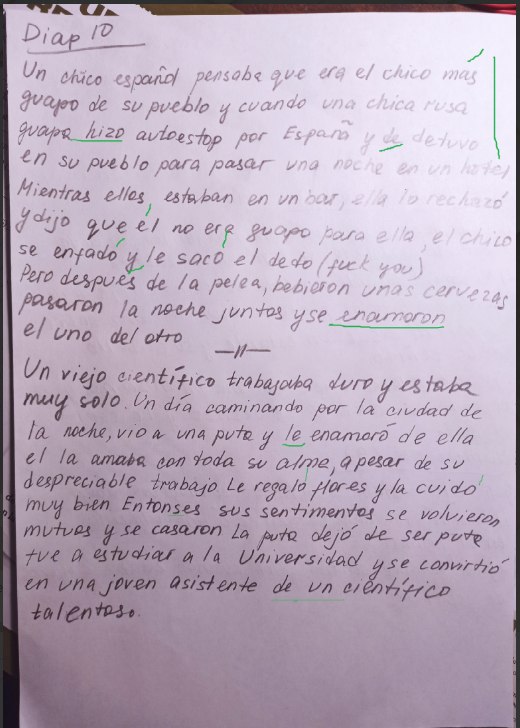 Diap 10
Un chico español pensaba que era el chico más
guapo de su pueblo y cuando una chica rusa
guapa hizo autoestop por España y de detuvo
en su pueblo para pasar una noche en un hotel
Mientras ellos, estaban en un bar, ella lo rechazó
y dijo que él no era guapo para ella, el chico
se enfadó y le sacó el dedo (fuck you)
Pero después de la pelea, bebieron unas cervezas
pasaron la noche juntos y se enamoron
el uno del otro
—11—
Un viejo científico trabajaba duro y estaba
muy solo. Un día caminando por la ciudad de
la noche, vio a una puta y le enamoró de ella
el la amaba con toda su alma, a pesar de su
despreciable trabajo Le regaló flores y la cuidó
muy bien Entonses sus sentimentos se volvieron
mutuos y se casaron La puta dejó de ser puta
fue a estudiar a la Universidad y se convirtió
en una joven asistente de un científico
talentoso.